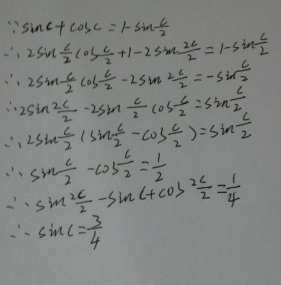 ∵ sinC+cosC=1-sin C/2
∴ 2sin C/2 cos C/2 +1-2sin² C/2 =1-sin C/2
∴ 2sin C/2 cos C/2 -2sin² C/2 =-sin C/2
∴ 2sin² C/2 -2sin C/2 cos C/2 =sin C/2
∴ 2sin C/2 (sin C/2 -cos C/2)=sin C/2
∴ sin C/2 -cos C/2 = 1/2
∴ sin² C/2 -sinC+cos² C/2 = 1/4
∴ sinC= 3/4